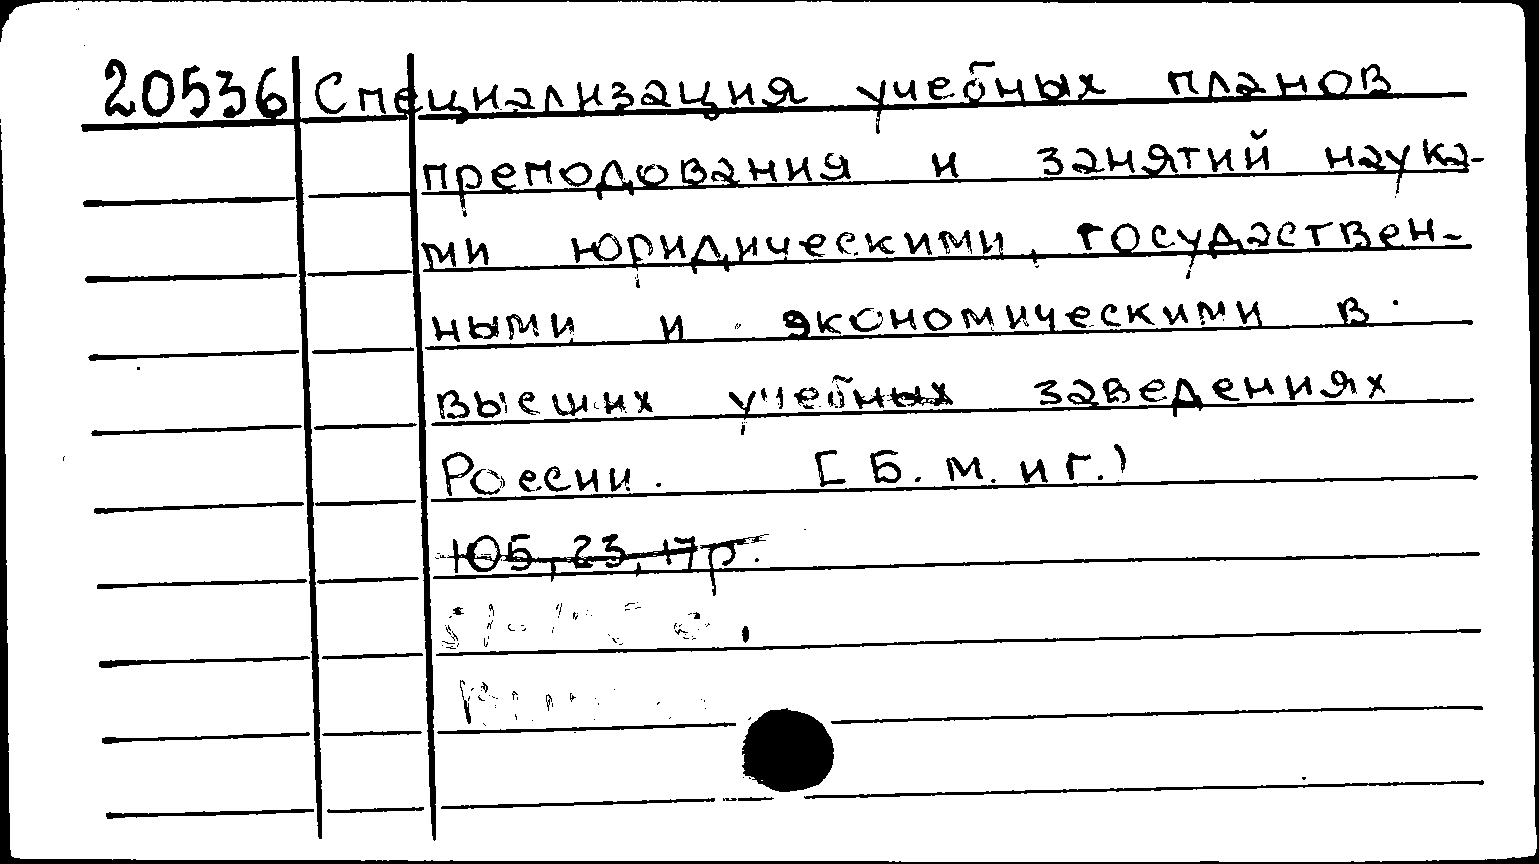 20536 Специализация учебных планов
преподования и занятий наука-
ми юридическими, государствен-
ными и экономическими в
высших учебных заведениях
России. [Б. м. и г.)
105, 23, 17 р.